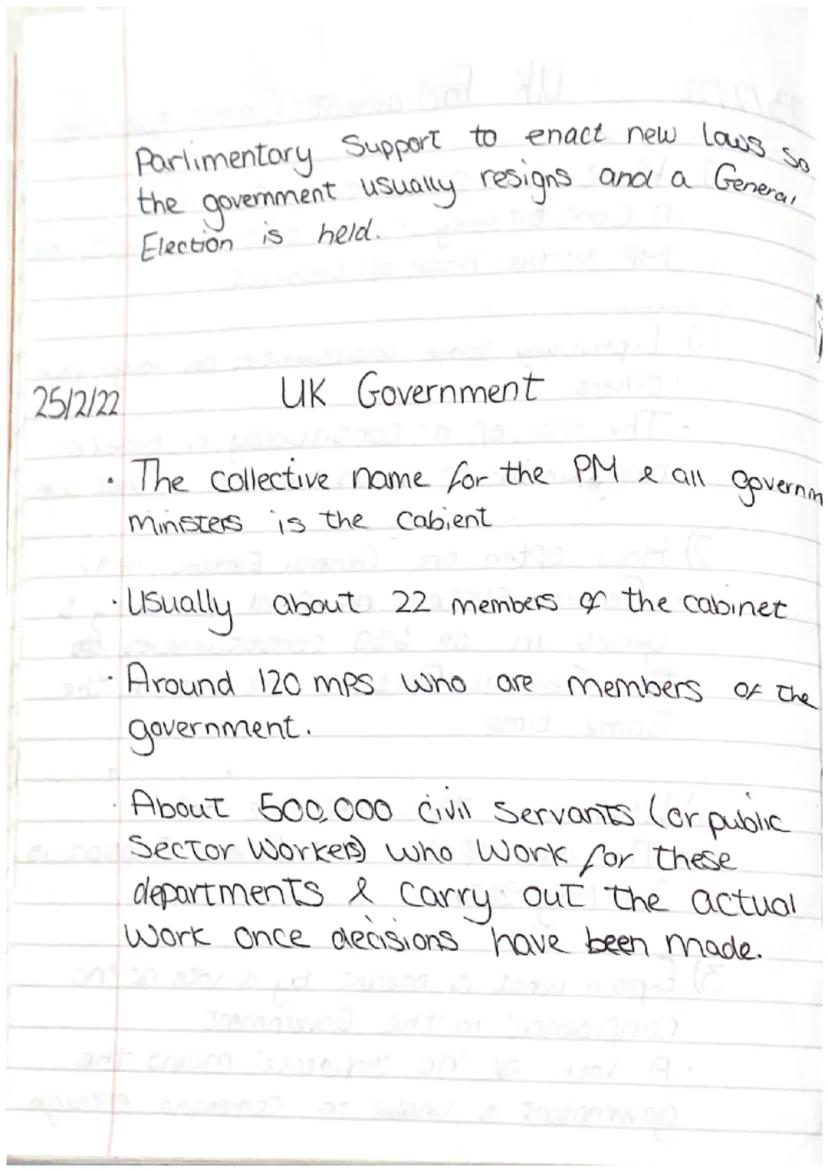 Parlimentary Support to enact new laws so
the government usually resigns and a General
Election is held.
25/2/22 UK Government
· The collective name for the PM & all governm
ministers is the cabient
· Usually about 22 members of the cabinet
· Around 120 MPs who are members of the
government.
· About 500,000 civil servants (or public
Sector Workers) who work for these
departments & carry out the actual
work once decisions have been made.